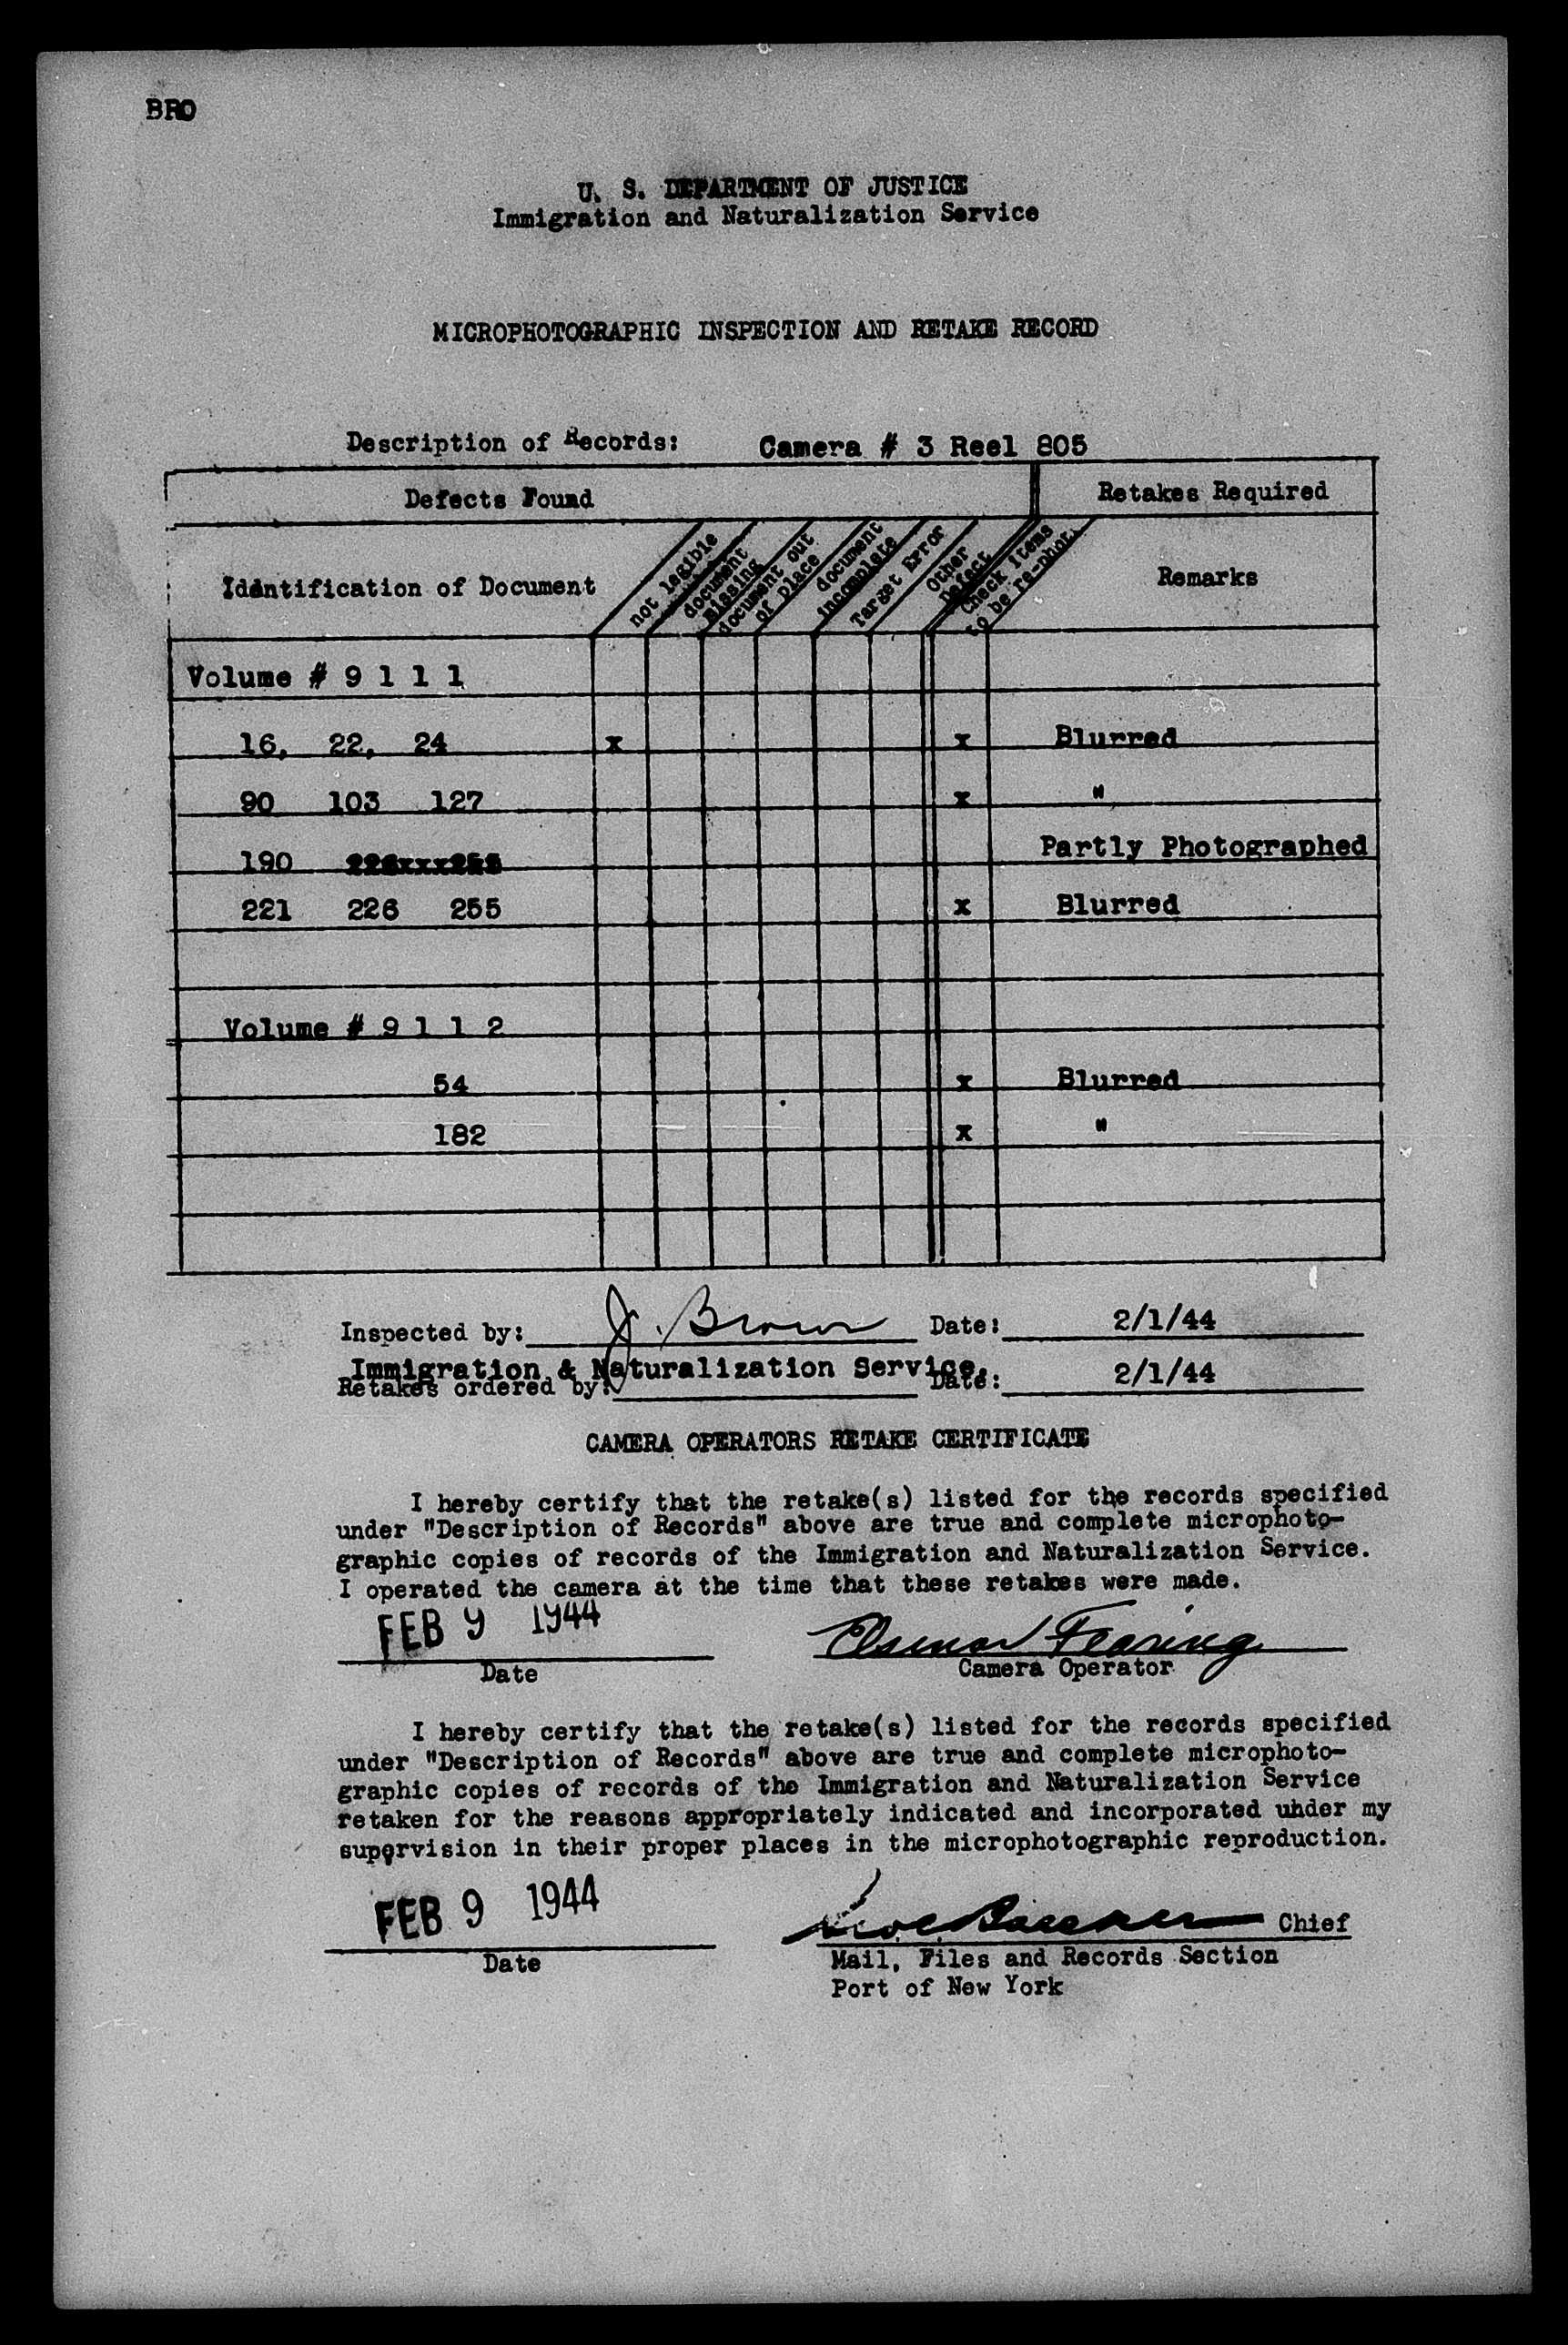 BRO
U. S. DEPARTMENT OF JUSTICE
Immigration and Naturalization Service
MICROPHOTOGRAPHIC INSPECTION AND RETAKE RECORD
Description of Records: Camera # 3 Reel 805
Defects Found Retakes Required
Idéntification of Document not legible document missing document out of place document incomplete Target Error Other Defect Check Items to be re-phot. Remarks
Volume # 9 1 1 1
16, 22, 24 x x Blurred
90 103 127 x "
190 226xxx255 Partly Photographed
221 226 255 x Blurred
Volume # 9 1 1 2
54 x Blurred
182 x "
Inspected by: J. Brown Date: 2/1/44
Immigration & Naturalization Service.
Retakes ordered by: Date: 2/1/44
CAMERA OPERATORS RETAKE CERTIFICATE
I hereby certify that the retake(s) listed for the records specified
under "Description of Records" above are true and complete microphoto-
graphic copies of records of the Immigration and Naturalization Service.
I operated the camera at the time that these retakes were made.
FEB 9 1944 Fearing
Date Camera Operator
I hereby certify that the retake(s) listed for the records specified
under "Description of Records" above are true and complete microphoto-
graphic copies of records of the Immigration and Naturalization Service
retaken for the reasons appropriately indicated and incorporated under my
supervision in their proper places in the microphotographic reproduction.
FEB 9 1944 Chief
Date Mail, Files and Records Section
Port of New York